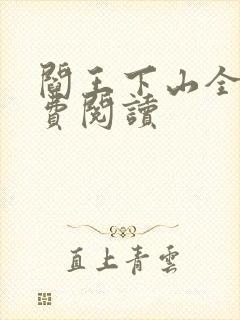 閻王下山全
費閱讀
直上青雲